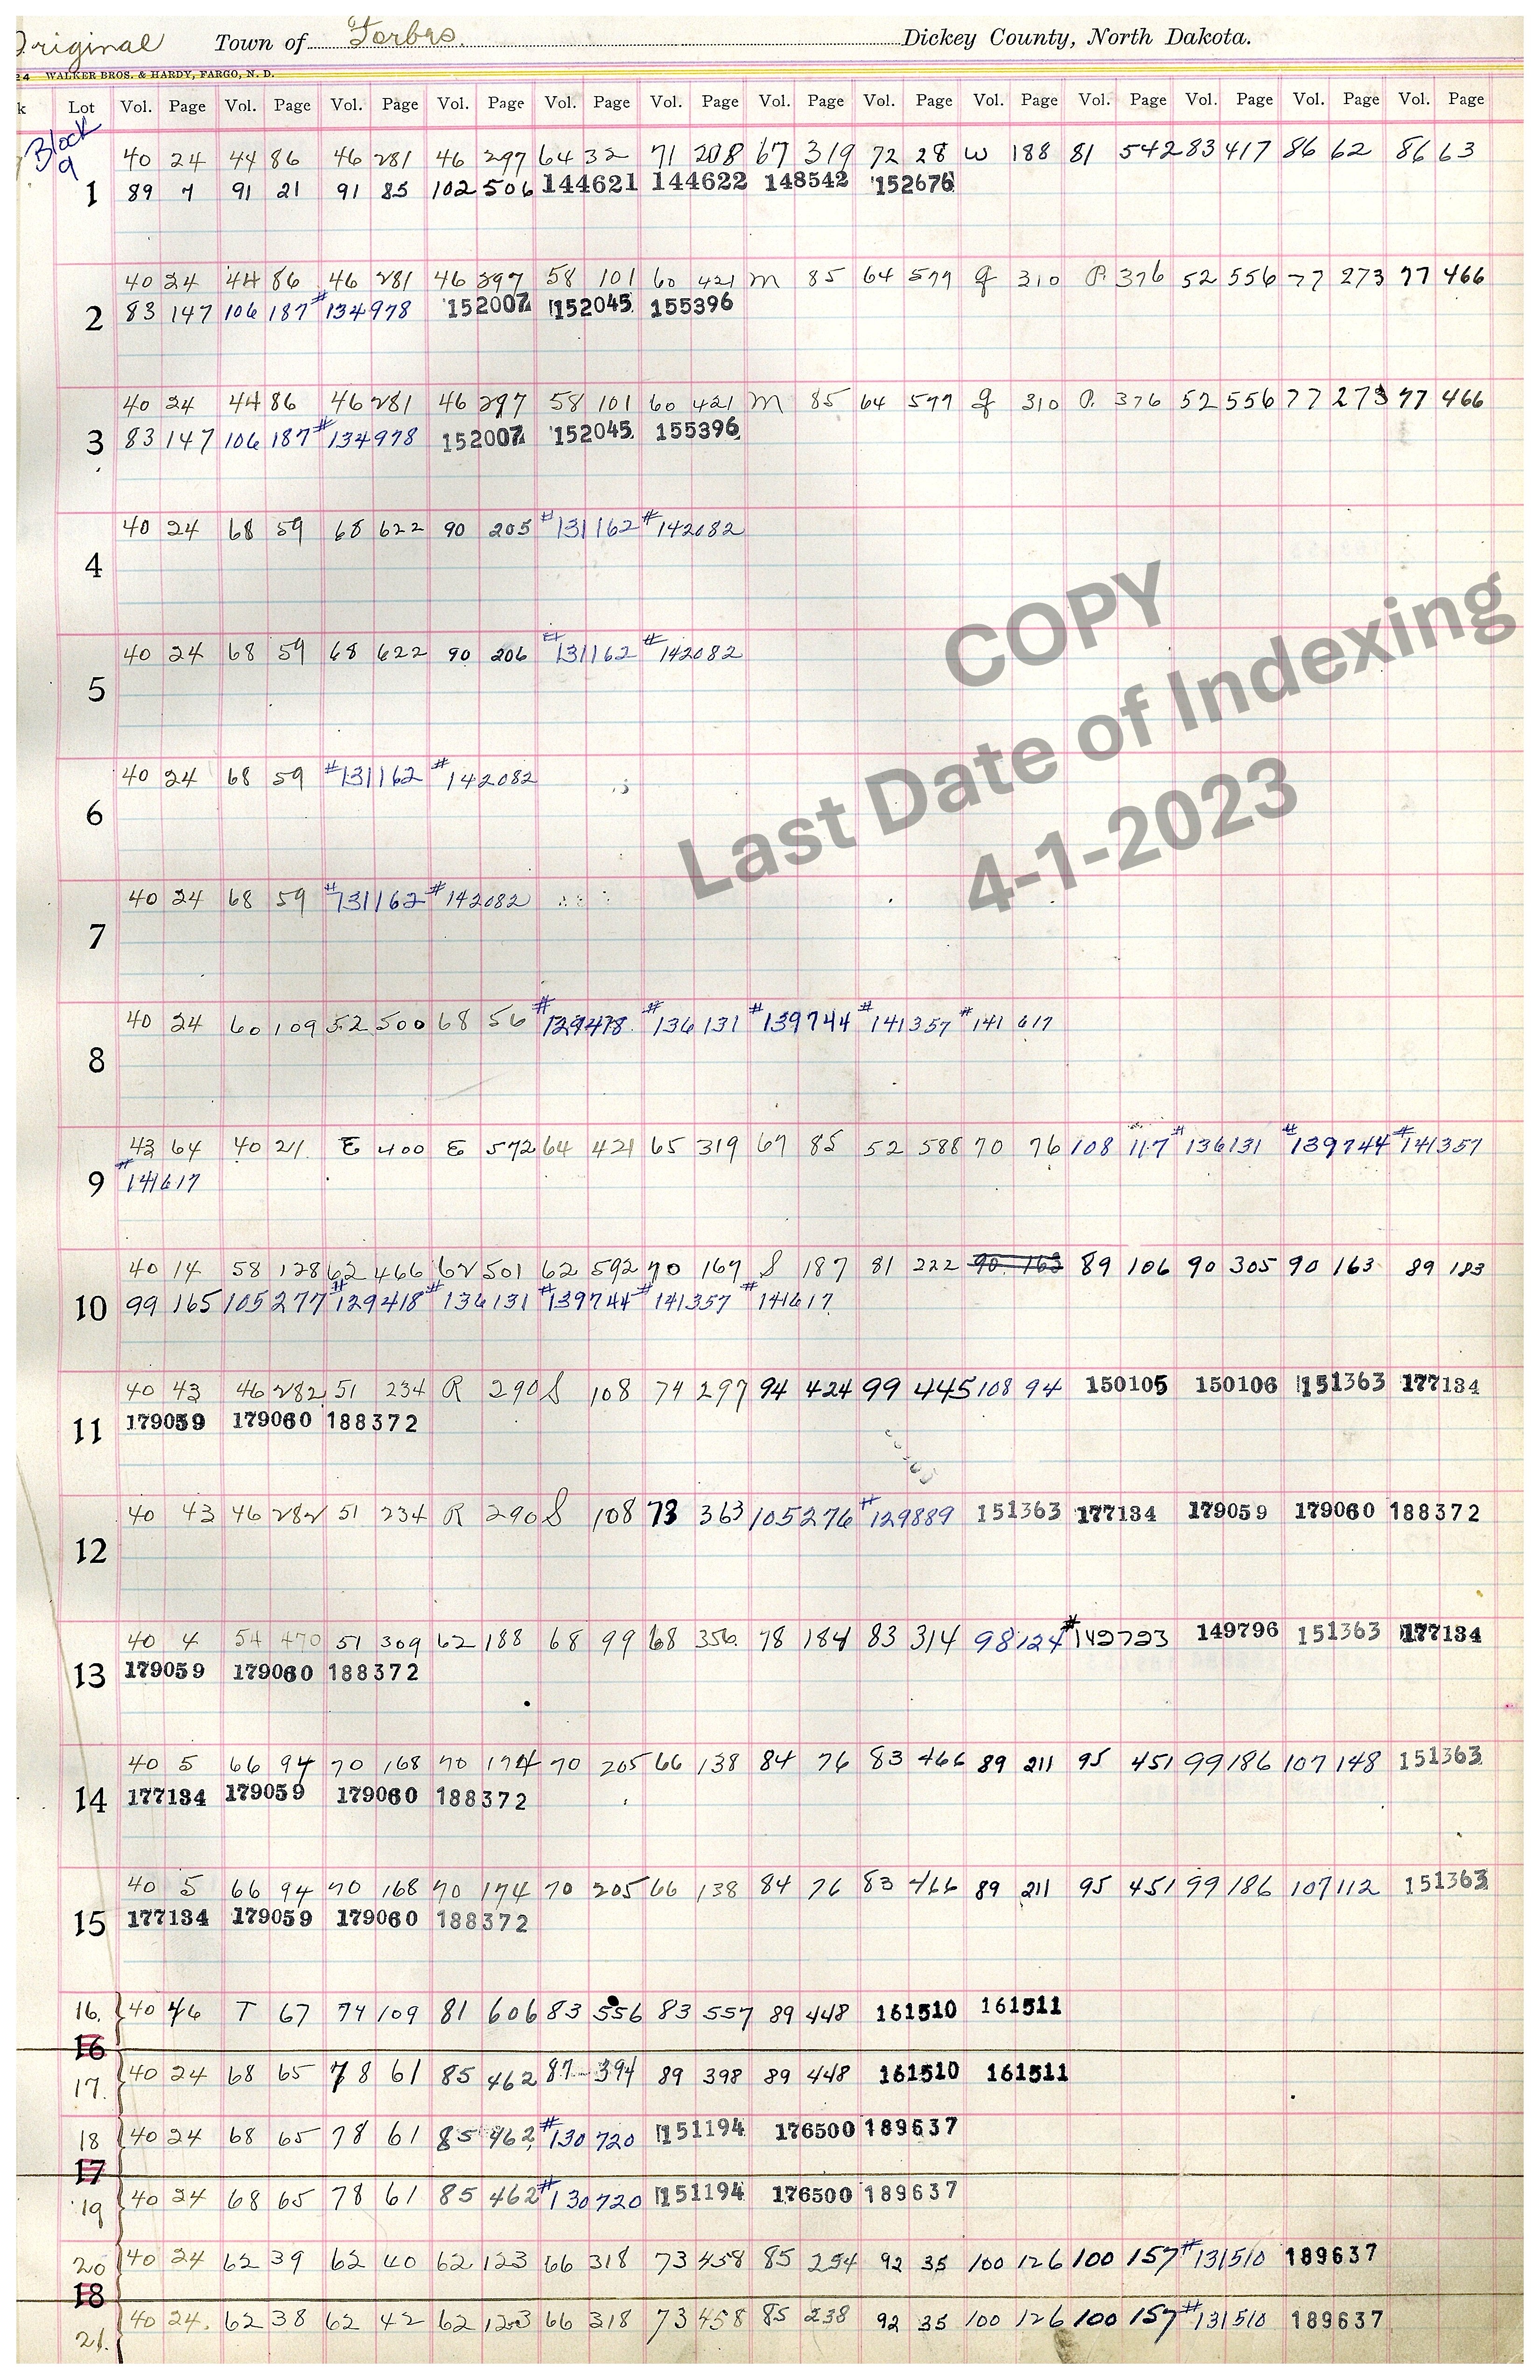 Original Town of Forbes. Dickey County, North Dakota.
24 WALKER BROS. & HARDY, FARGO, N. D.
k Lot Vol. Page Vol. Page Vol. Page Vol. Page Vol. Page Vol. Page Vol. Page Vol. Page Vol. Page Vol. Page Vol. Page Vol. Page Vol. Page
Block 9
40 24 44 86 46 281 46 297 64 32 71 208 67 319 72 28 W 188 81 542 83 417 86 62 86 63
1 89 7 91 21 91 85 102 506 144621 144622 148542 152676
40 24 44 86 46 281 46 297 58 101 60 421 M 85 64 577 G 310 P. 376 52 556 77 273 77 466
2 83 147 106 187 #134978 152007 152045 155396
40 24 44 86 46 281 46 297 58 101 60 421 M 85 64 577 G 310 P. 376 52 556 77 273 77 466
3 83 147 106 187 #134978 152007 152045 155396
40 24 68 59 68 622 90 205 #131162 #142082
4
40 24 68 59 68 622 90 206 #131162 #142082
5
40 24 68 59 #131162 #142082
6
40 24 68 59 #131162 #142082
7
40 24 60 109 52 500 68 56 #129418 #136131 #139744 #141357 #141617
8
43 64 40 21 E 400 E 572 64 421 65 319 67 85 52 588 70 76 108 117 #136131 #139744 #141357
9 #141617
40 14 58 128 62 466 62 501 62 592 70 167 S 187 81 222 90 163 89 106 90 305 90 163 89 183
10 99 165 105 277 #129418 #136131 #139744 #141357 #141617
40 43 46 282 51 234 R 290 S 108 74 297 94 424 99 445 108 94 150105 150106 151363 177134
11 179059 179060 188372
40 43 46 282 51 234 R 290 S 108 73 363 105 276 #129889 151363 177134 179059 179060 188372
12
40 4 54 470 51 309 62 188 68 99 68 356 78 184 83 314 98 124 #142723 149796 151363 177134
13 179059 179060 188372
40 5 66 94 70 168 70 174 70 205 66 138 84 76 83 466 89 211 95 451 99 186 107 148 151363
14 177134 179059 179060 188372
40 5 66 94 70 168 70 174 70 205 66 138 84 76 83 466 89 211 95 451 99 186 107 112 151363
15 177134 179059 179060 188372
16. 40 46 T 67 74 109 81 606 83 556 83 557 89 448 161510 161511
16
17. 40 24 68 65 78 61 85 462 87 394 89 398 89 448 161510 161511
18 40 24 68 65 78 61 85 462 #130720 151194 176500 189637
17
19 40 24 68 65 78 61 85 462 #130720 151194 176500 189637
20 40 24 62 39 62 40 62 123 66 318 73 458 85 254 92 35 100 126 100 157 #131510 189637
18
21. 40 24. 62 38 62 42 62 123 66 318 73 458 85 238 92 35 100 126 100 157 #131510 189637
COPY
Last Date of Indexing
4-1-2023